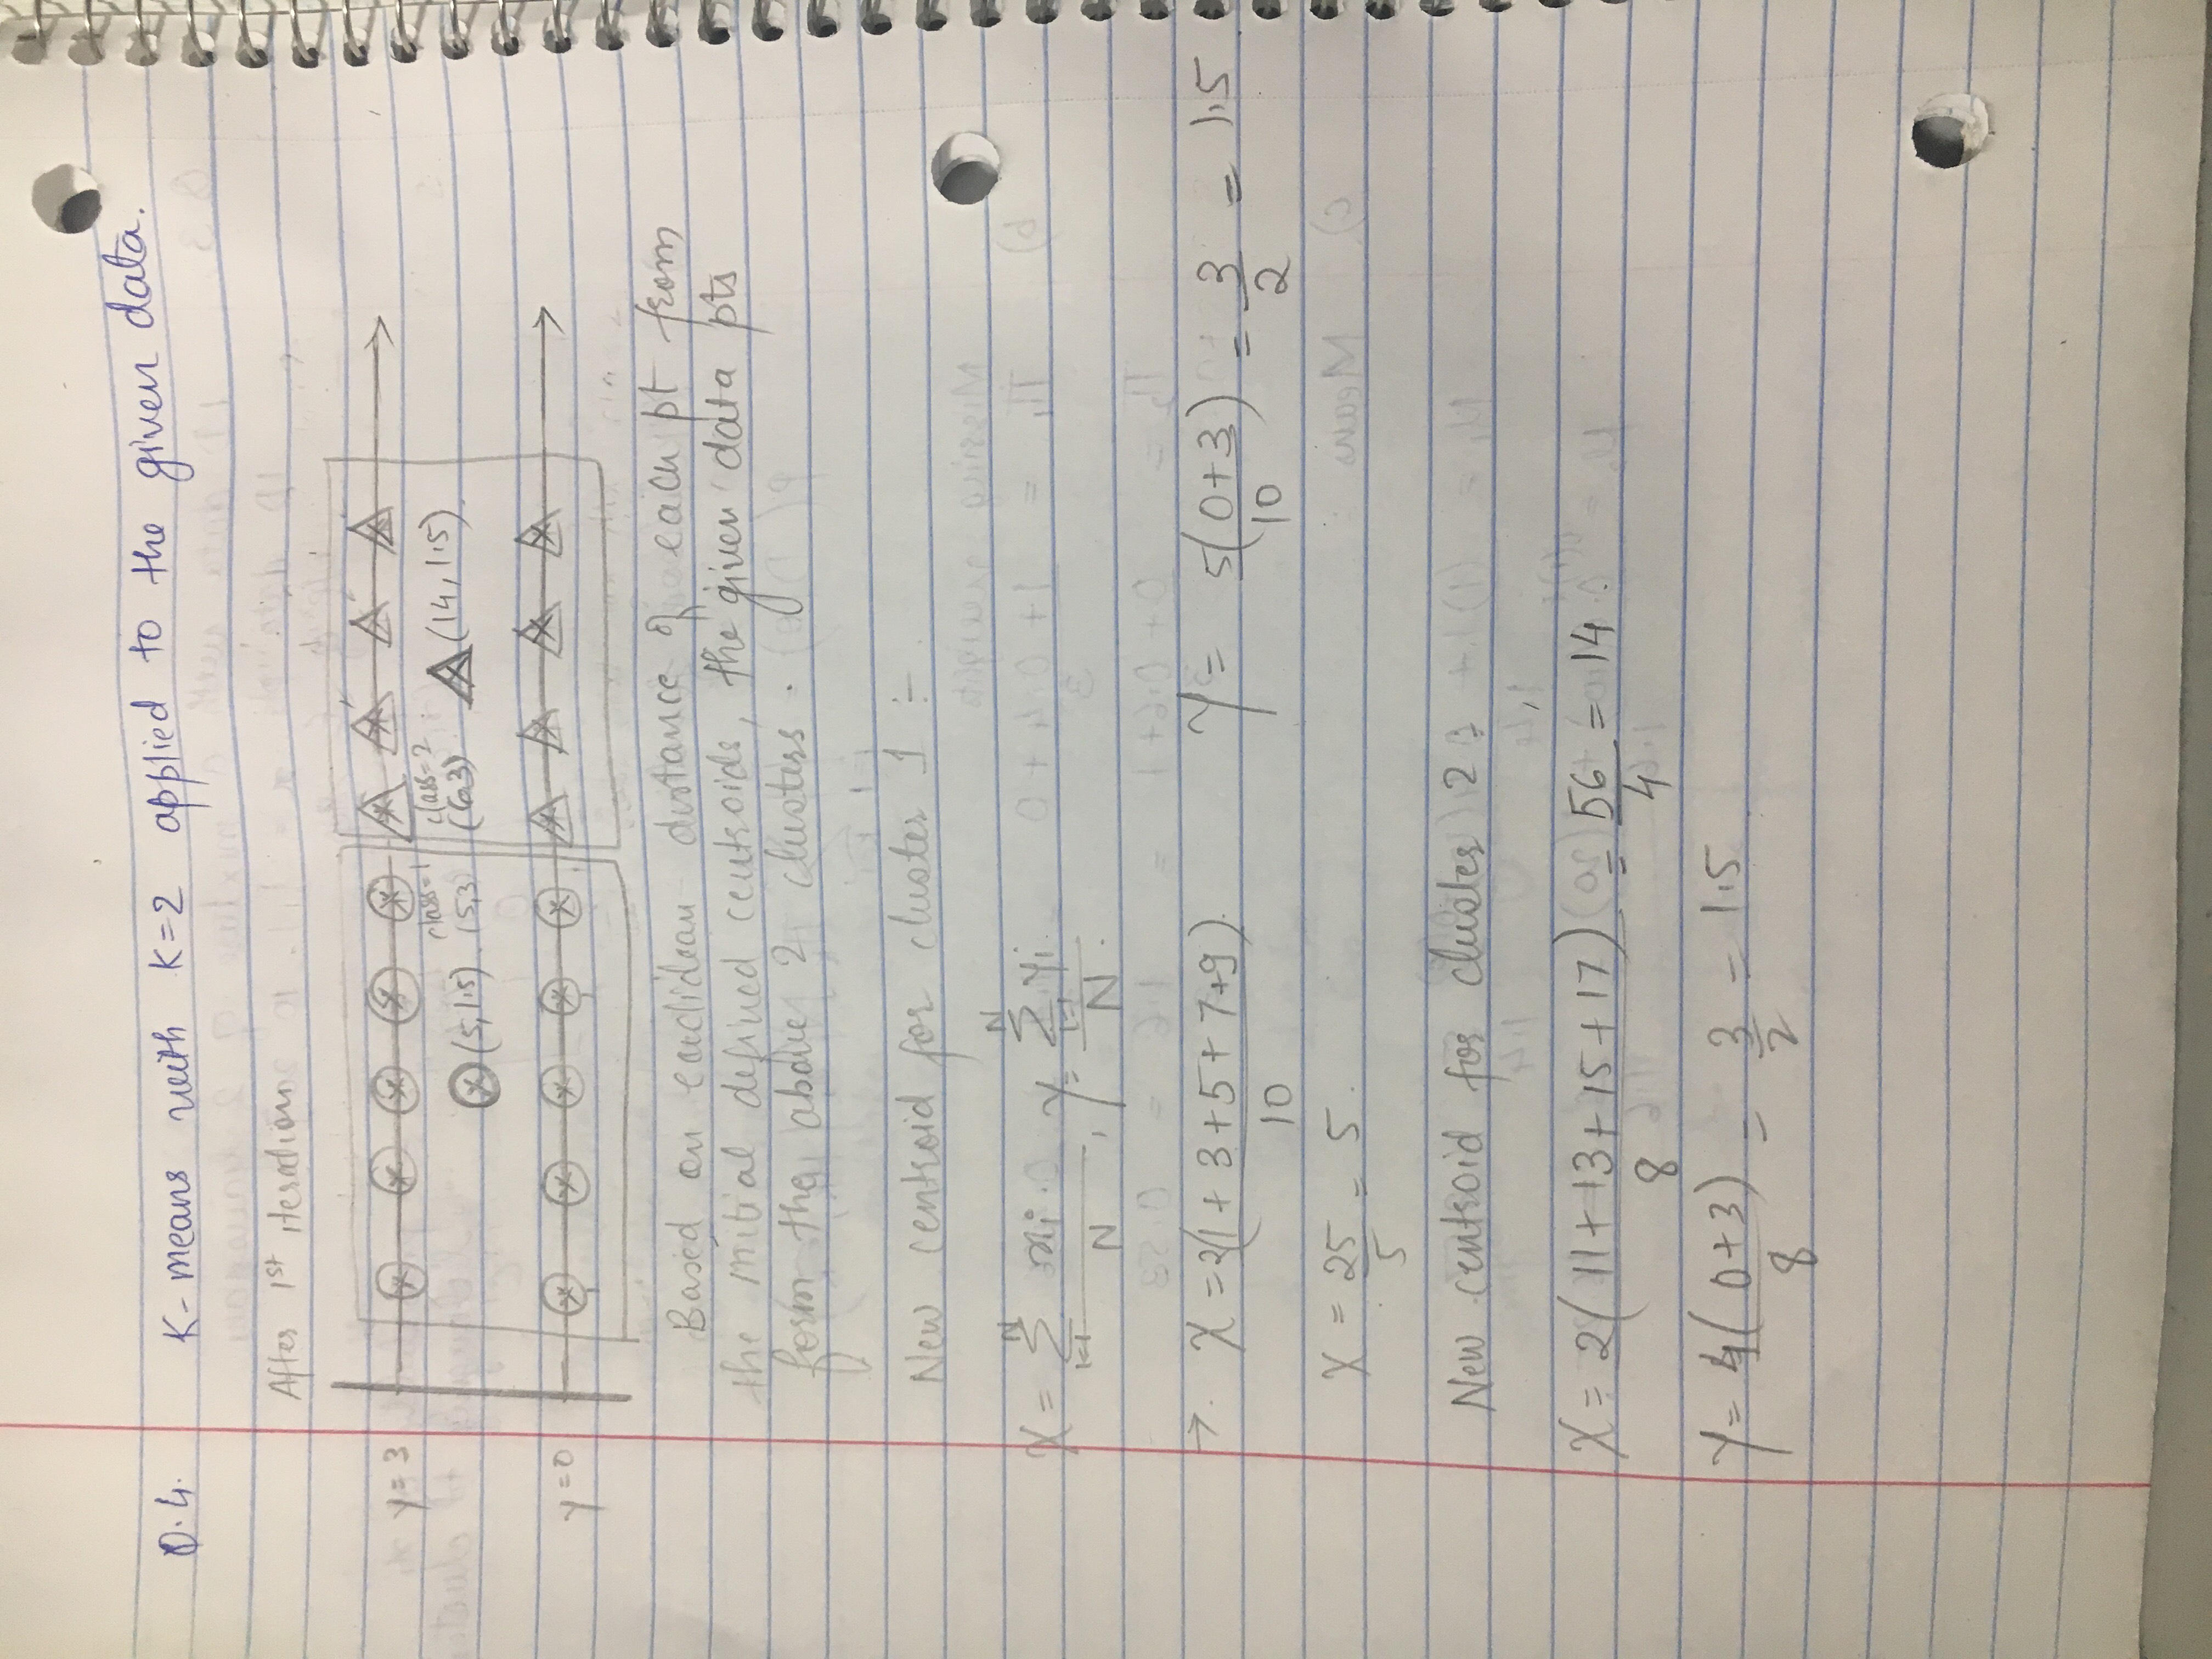 Q.4. K-means with K=2 applied to the given data.
After 1st iteration
y=3
class=1 class=2
(5,1.5) (5,3 (6,3) (14,1.5)
y=0
Based on euclidean distance of each pt from
the initial defined centroids, the given data pts
form the above 2 clusters.
New centroid for cluster 1 :-
X = Σ_{i=1}^{N} xi / N , Y = Σ_{i=1}^{N} yi / N.
→ X = 2(1+3+5+7+9) / 10 Y = 5(0+3) / 10 = 3/2 = 1.5
X = 25/5 = 5.
New centroid for cluster 2 :
X = 2(11+13+15+17) / 8 = 56/4 = 14.
Y = 4(0+3) / 8 = 3/2 = 1.5